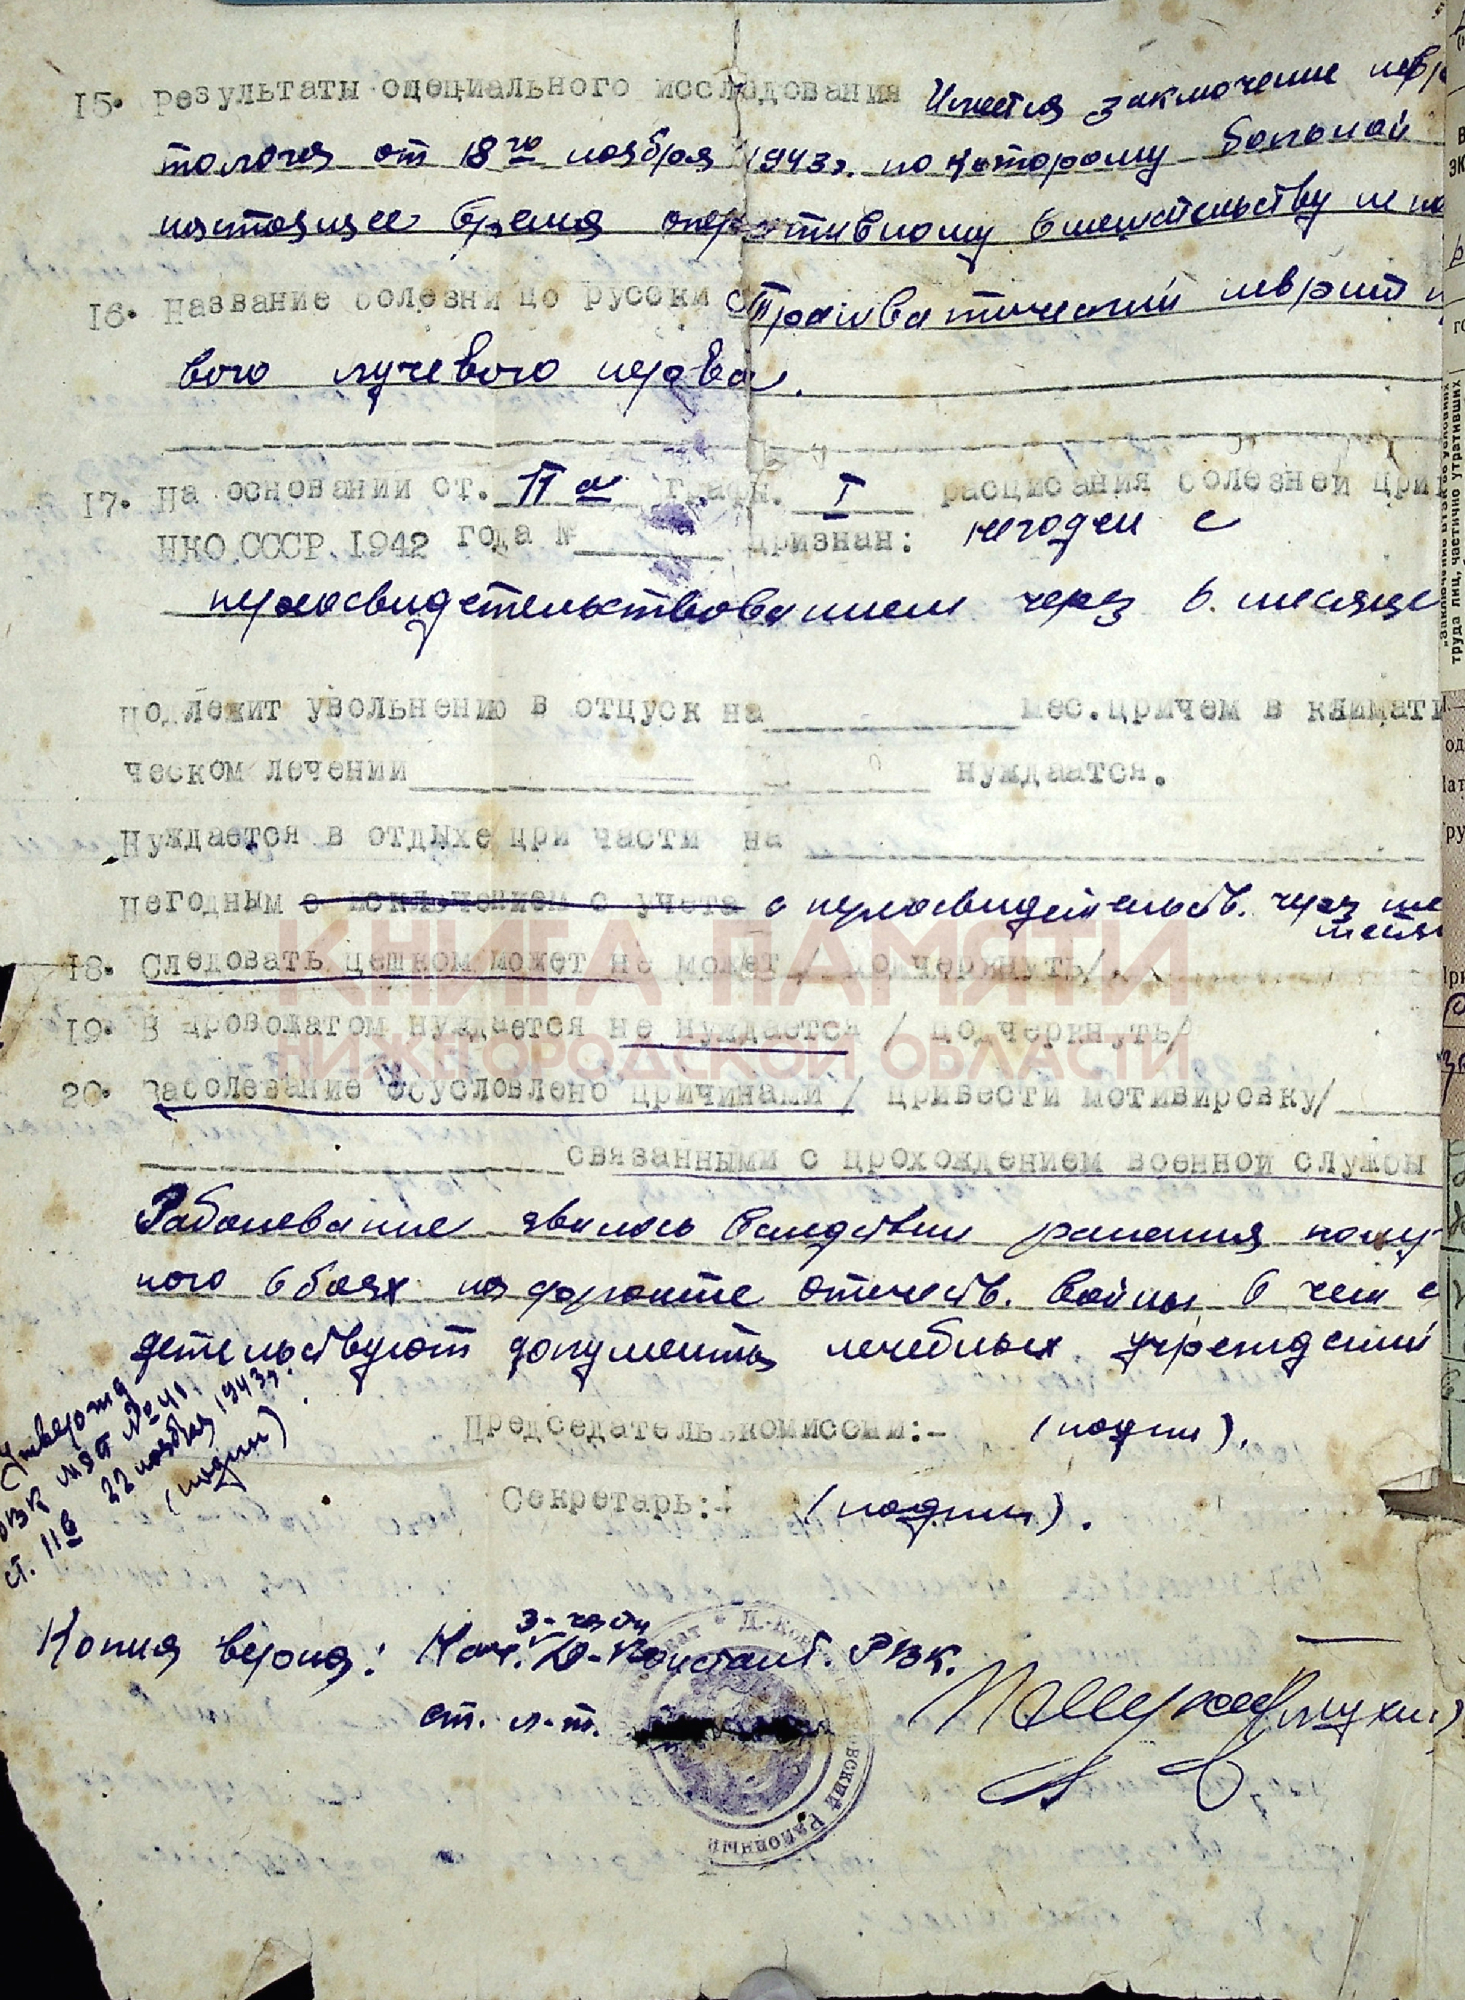 15. Результаты специального исследования Имеется заключение невро
толога от 18го ноября 1943г. по которому больной
настоящее время оперативному вмешательству не по
16. Название болезни по русски Травматический неврит п
вого лучевого нерва.
17. На основании ст. 11 а графы. I расписания болезней при
НКО СССР 1942 года № признан: негоден с
переосвидетельствованием через 6. месяце
Подлежит увольнению в отпуск на мес. причем в климати
ческом лечении нуждается.
Нуждается в отдыхе при части на
Негодным с исключением с учета с переосвидетельств. через
18. Следовать пешком может не может / подчеркнуть/
19. В провожатом нуждается не нуждается / подчеркнуть/
20. Заболевание обусловлено причинами / привести мотивировку/
связанными с прохождением военной службы
Заболевание явилось вследствии ранения получ
ного в боях на фронте Отечеств. войны в чем с
детельствуют документы лечебных учреждений
Председатель комиссии:- (подпи).
Секретарь:- (подпи).
Утвержд
ОВК МЭП № 41
ст. 11в 22 ноября 1943г.
(подпи)
Копия верна: Нач. 3-части Д-Констант. РВК.
ст. л-т.
Районный
КНИГА ПАМЯТИ
НИЖЕГОРОДСКОЙ ОБЛАСТИ
труда лиц, частично утративших